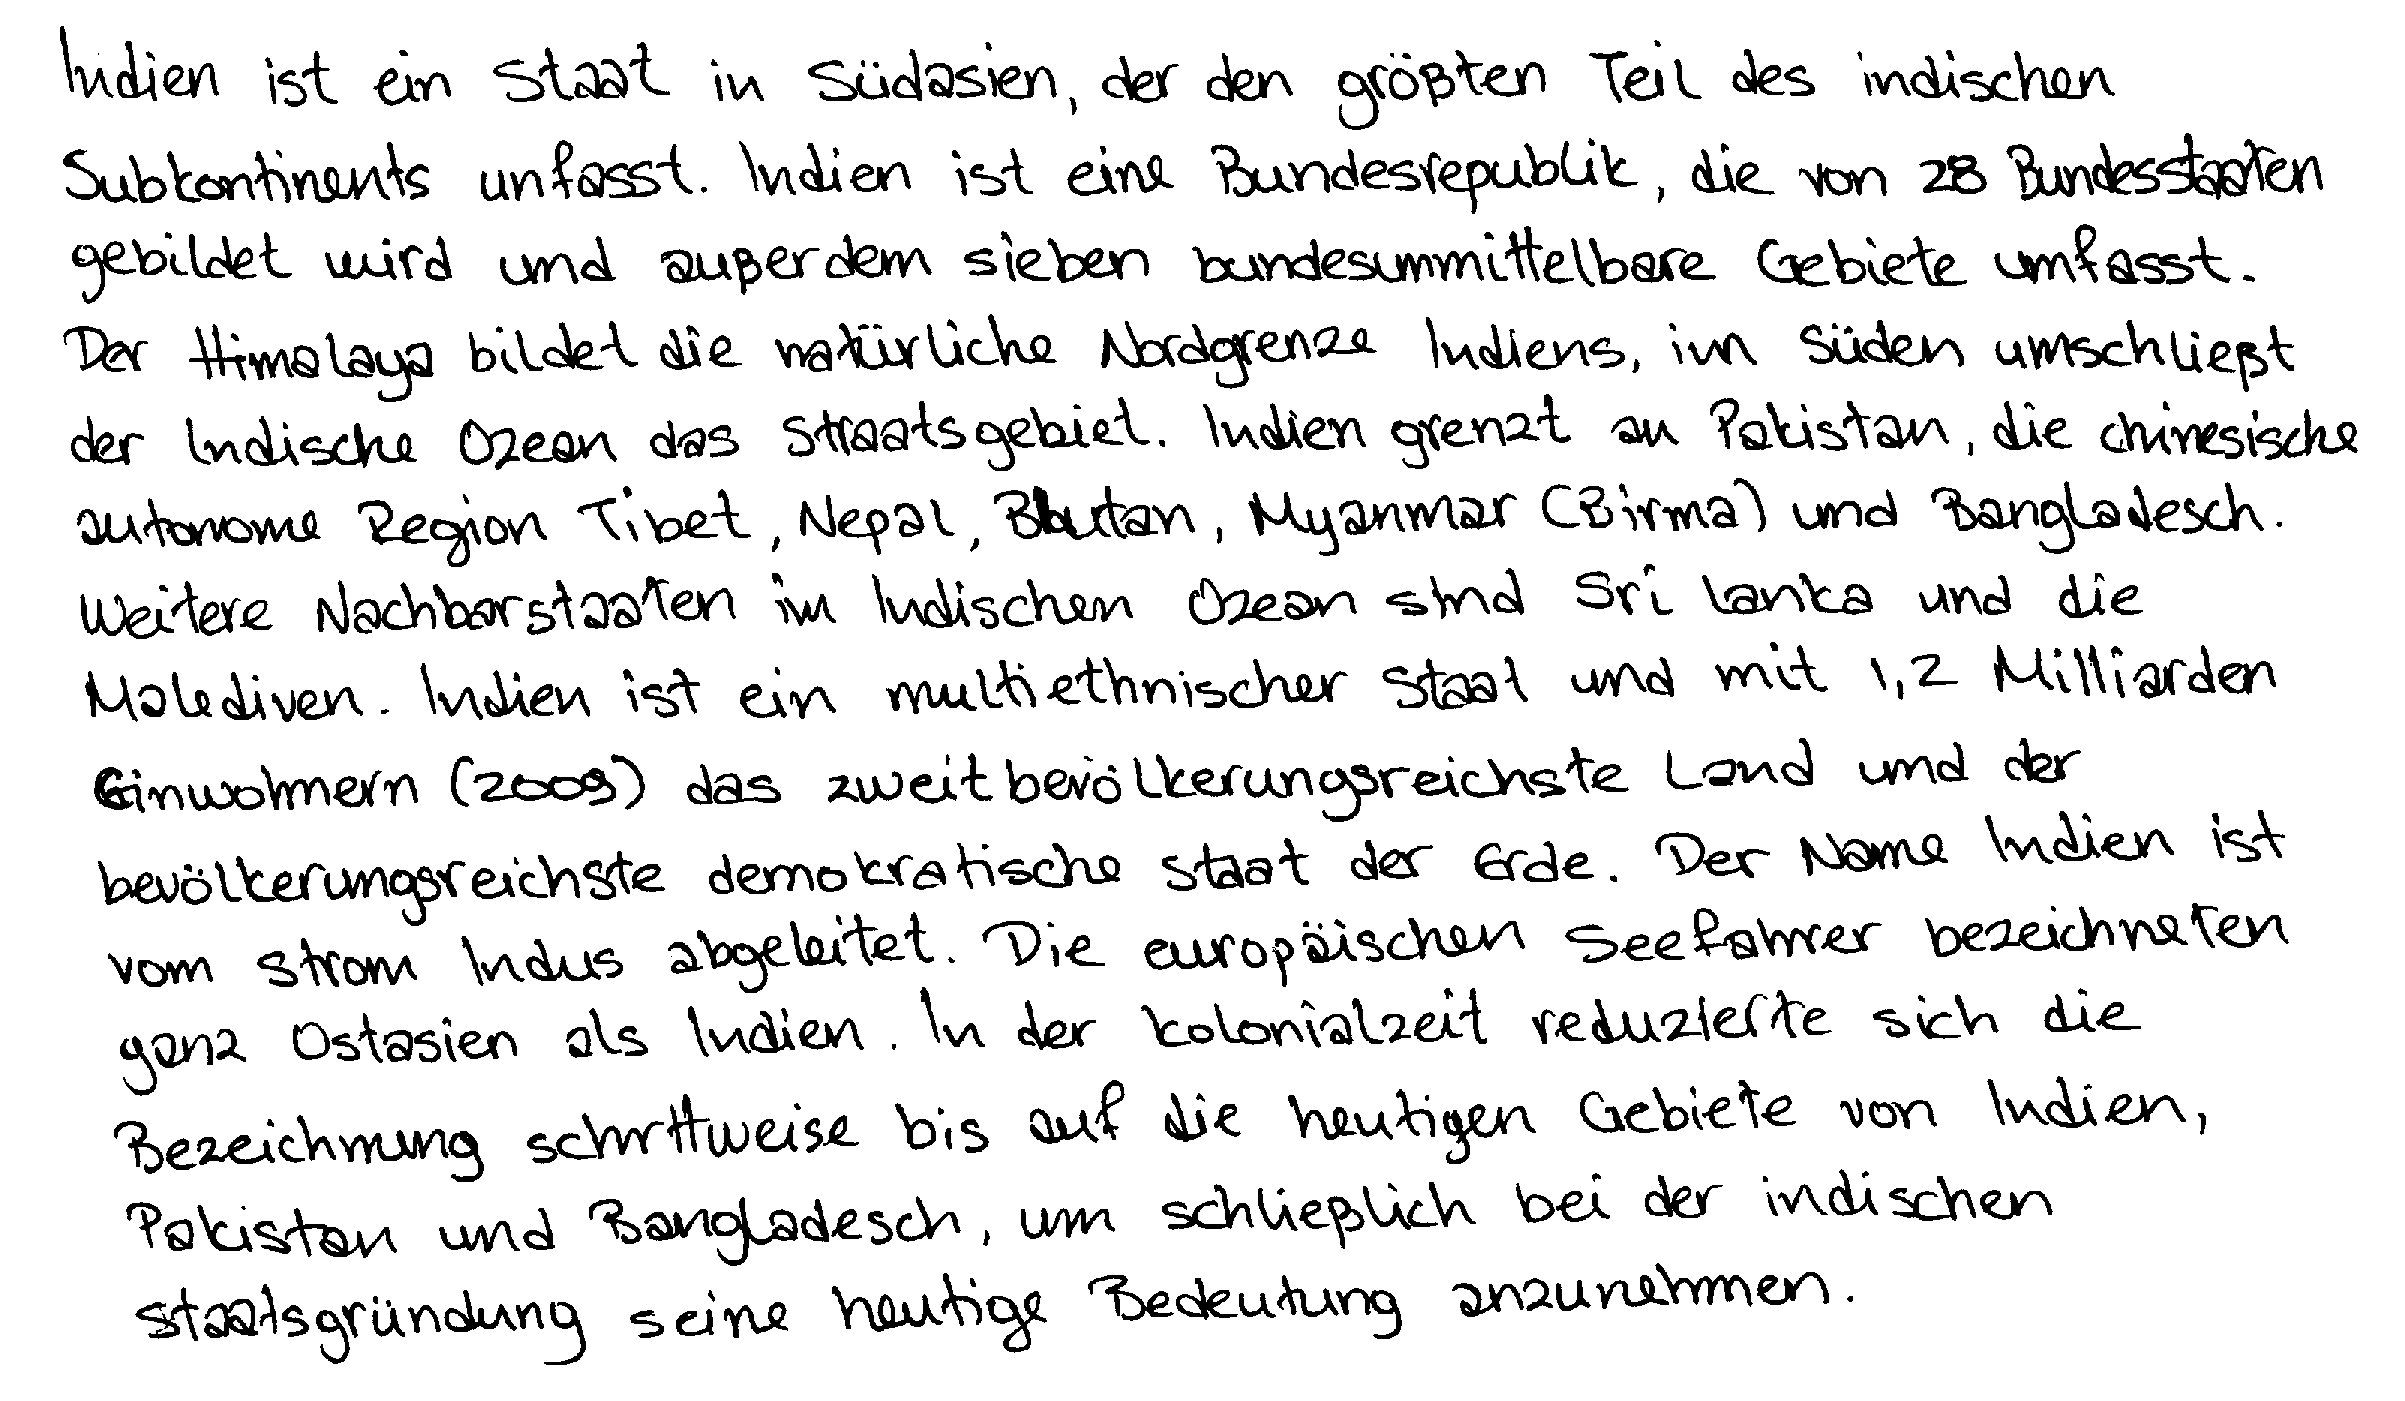 Indien ist ein Staat in Südasien, der den größten Teil des indischen
Subkontinents umfasst. Indien ist eine Bundesrepublik, die von 28 Bundesstaaten
gebildet wird und außerdem sieben bundesummittelbare Gebiete umfasst.
Der Himalaya bildet die natürliche Nordgrenze Indiens, im Süden umschließt
der Indische Ozean das Straatsgebiet. Indien grenzt an Pakistan, die chinesische
autonome Region Tibet, Nepal, Bhutan, Myanmar (Birma) und Bangladesch.
Weitere Nachbarstaaten im Indischen Ozean sind Sri Lanka und die
Malediven. Indien ist ein multiethnischer Staat und mit 1,2 Milliarden
Einwohnern (2009) das zweitbevölkerungsreichste Land und der
bevölkerungsreichste demokratische Staat der Erde. Der Name Indien ist
vom Strom Indus abgeleitet. Die europäischen Seefahrer bezeichneten
ganz Ostasien als Indien. In der Kolonialzeit reduzierte sich die
Bezeichnung schrittweise bis auf die heutigen Gebiete von Indien,
Pakistan und Bangladesch, um schließlich bei der indischen
Staatsgründung seine heutige Bedeutung anzunehmen.